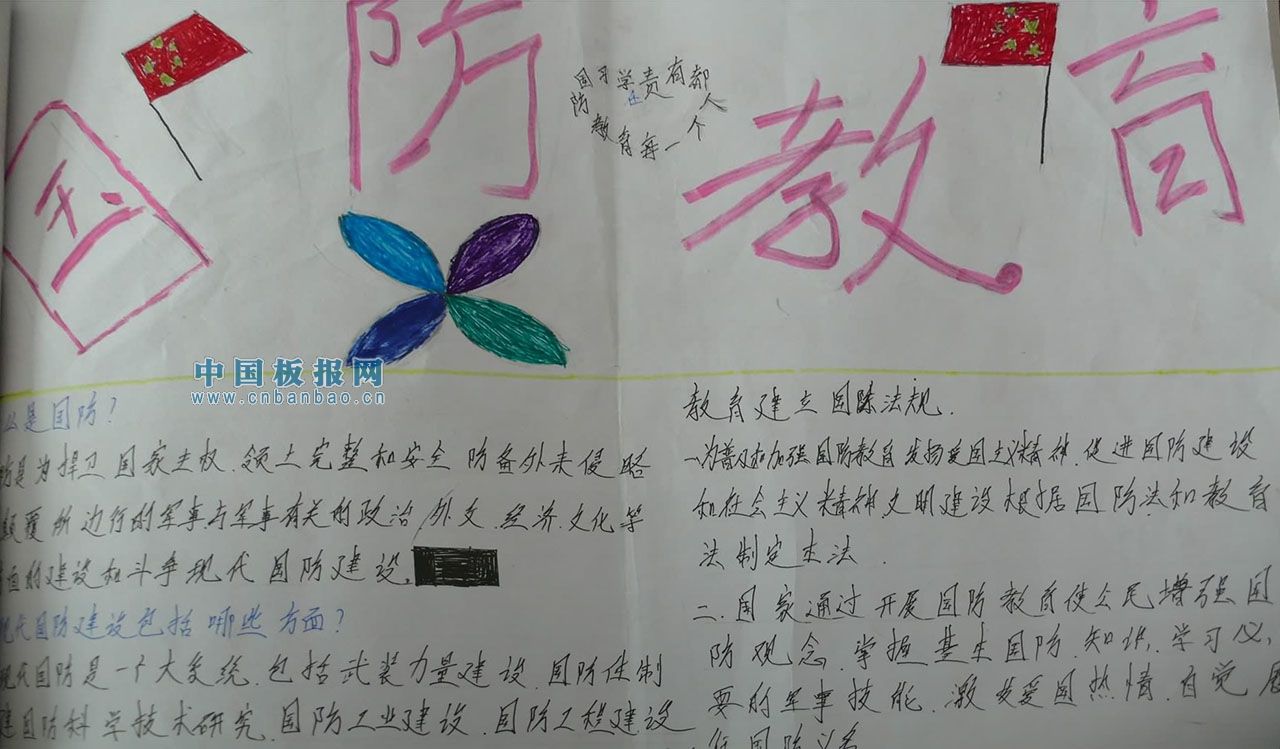 国防教育
国习学责有都
防 人
教育每一个
中国板报网
www.cnbanbao.cn
么是国防?
防是为捍卫国家主权.领土完整和安全 防备外来侵略
颠覆所进行的军事与军事有关的政治 外交.经济.文化等
面的建设和斗争现代国防建设.
现代国防建设包括哪些方面?
现代国防是一个大系统.包括武装力量建设.国防体制
建国防科学技术研究.国防工业建设.国防工程建设
教育建立国防法规.
一为普及和加强国防教育发扬爱国主义精神.促进国防建设
和社会主义精神文明建设根据国防法和教育
法制定本法.
二.国家通过开展国防教育使公民增强国
防观念.掌握基本国防.知识.学习必.
要的军事技能.激发爱国热情.自觉履
行国防义务